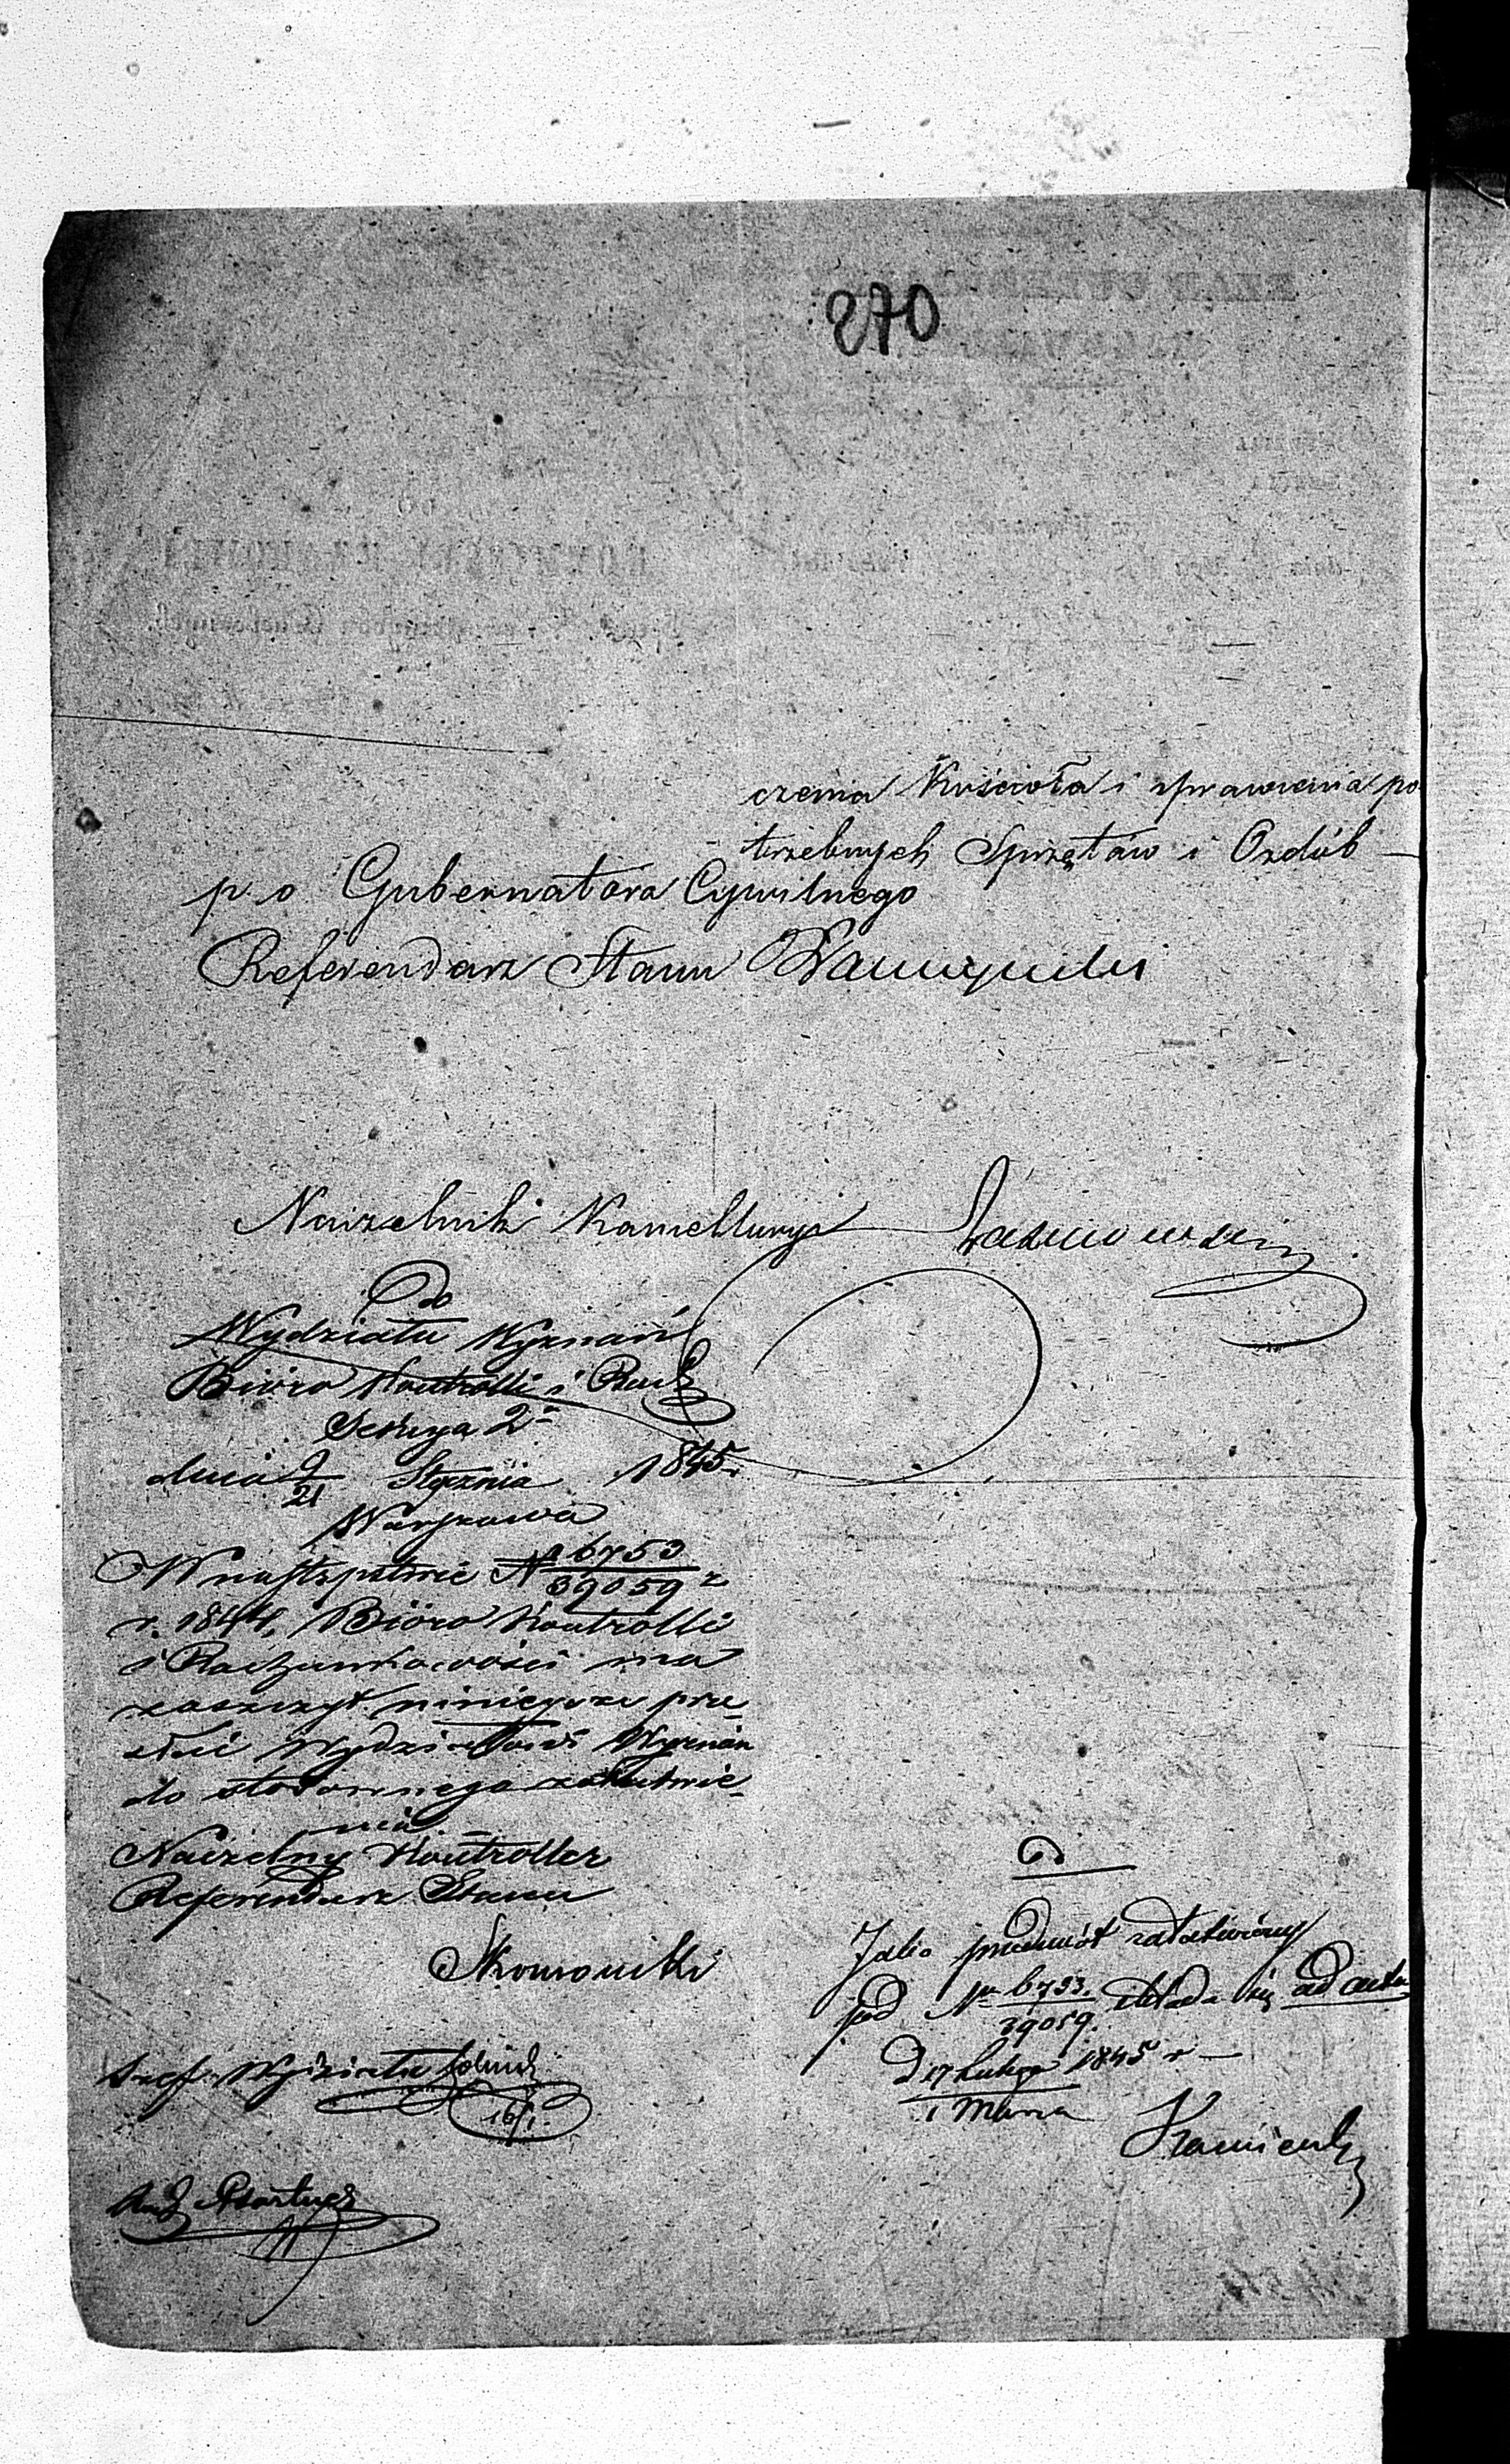 270
czenia Kościoła i sprawienia po
trzebnych Sprzętów i Ozdób —
p. o Gubernatora Cywilnego
Referendarz Stanu
Naczelnik Kancellaryi
Do
Wydziału Wyznań
Biuro Kontrolli i Rach
Sekcya 2ª
dnia 9/21 Stycznia 1845 r.
Warszawa
W następstwie Nº 6753/39059 z
r. 1844, Biuro Kontrolli
i Rachunkowości ma
zaszczyt niniejsze prze-
słać Wydziałowi Wyznań
do stosownego załatwie-
nia
Naczelny Kontroller
Referendarz Stanu
Szef Wydziału
16/1.
Jako przedmiot załatwiony
pod Nr 6753./39059. składa się ad acta
D 17 Lutego/1 Marca 1845 r —